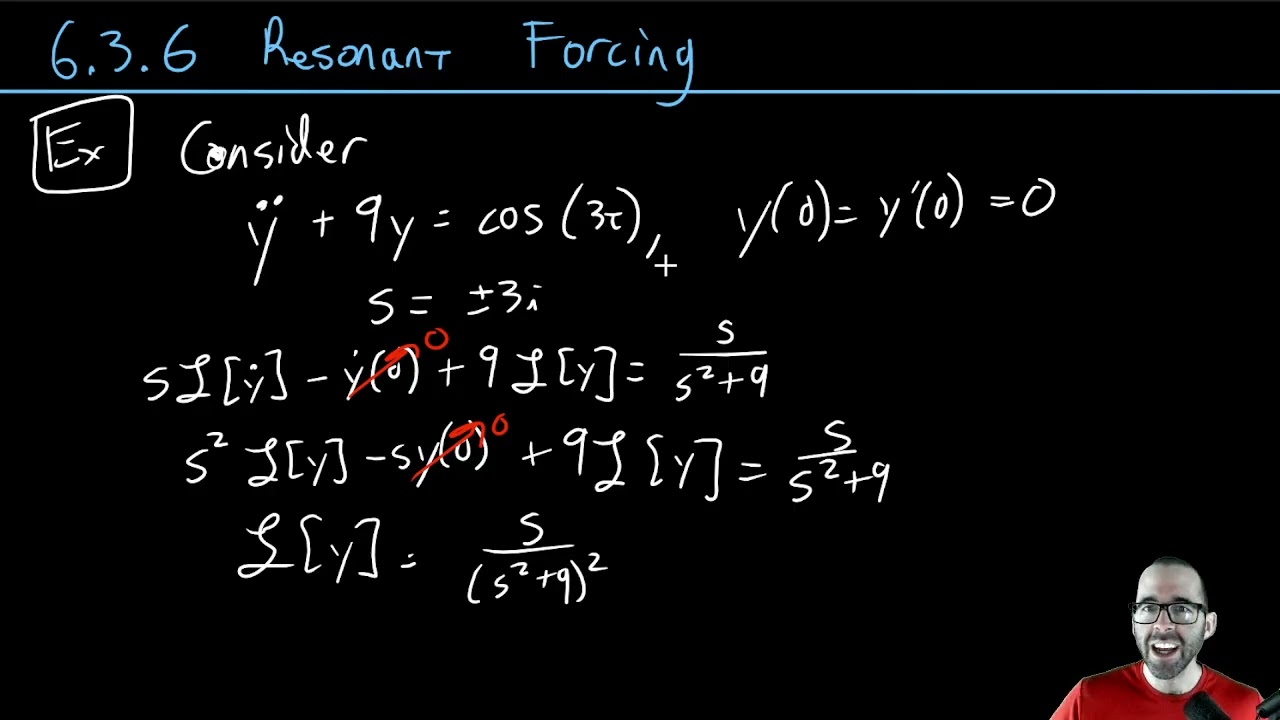 6.3.6 Resonant Forcing
Ex Consider
ÿ + 9y = cos(3t), y(0) = y'(0) = 0
+
s = ±3i
sℒ[ẏ] - ẏ(0) 0 + 9ℒ[y] = s/(s²+9)
s²ℒ[y] - sy(0) 0 + 9ℒ[y] = s/(s²+9)
ℒ[y] = s/(s²+9)²